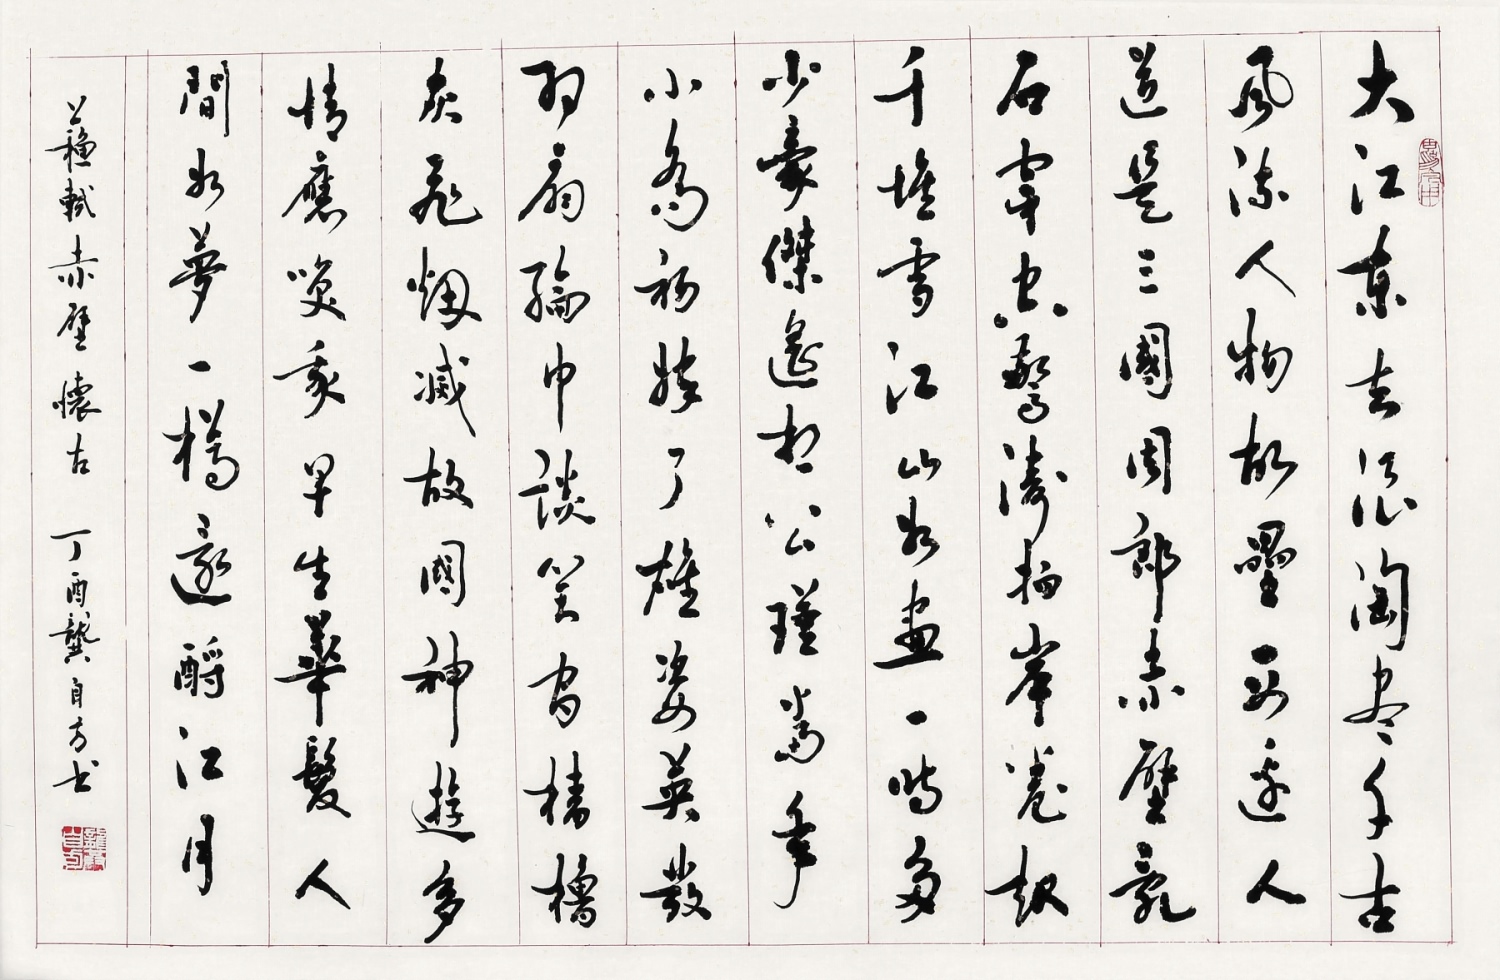 大江東去浪淘尽千古
風流人物故壘西邊人
道是三國周郎赤壁亂
石穿空驚濤拍岸卷起
千堆雪江山如畫一時多
少豪傑遙想公瑾當年
小喬初嫁了雄姿英發
羽扇綸巾談笑間檣櫓
灰飛煙滅故國神遊多
情應笑我早生華髮人
間如夢一樽還酹江月
蘇軾赤壁懷古 丁酉龔自方书